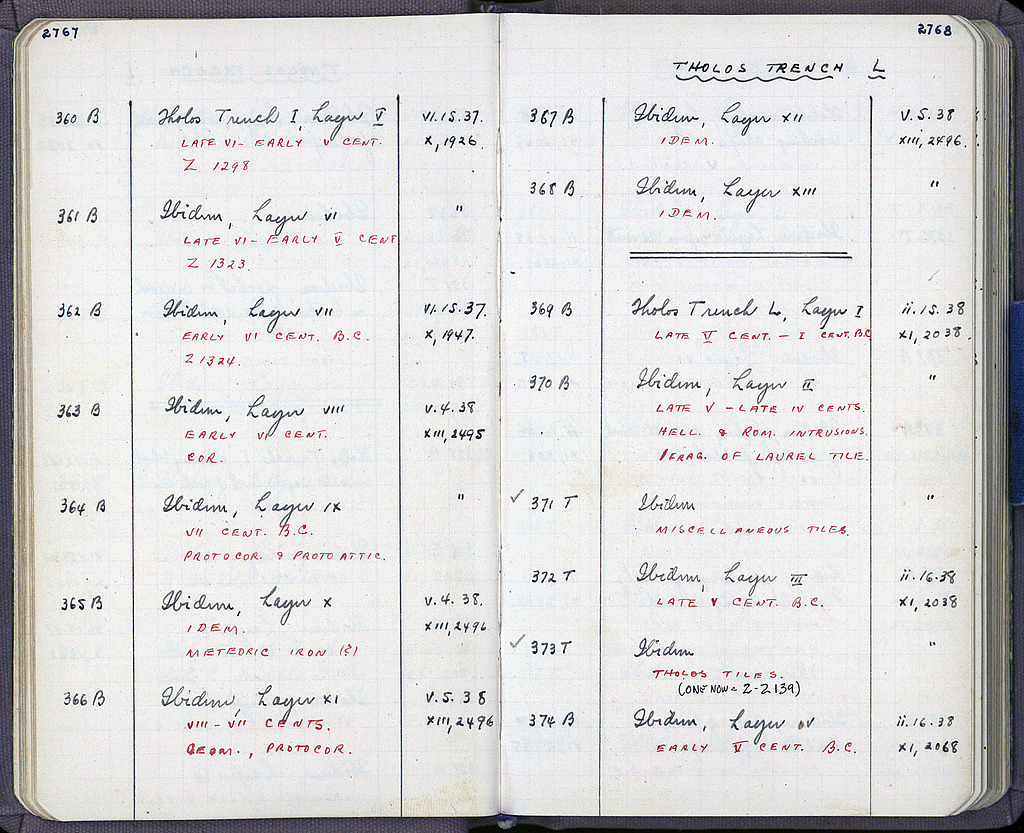 2767
360 B Tholos Trench I, Layer V VI.15.37.
LATE VI - EARLY V CENT. X, 1926.
Z 1298
361 B Ibidem, Layer VI "
LATE VI - EARLY V CENT
Z 1323.
362 B Ibidem, Layer VII VI.15.37.
EARLY VI CENT. B.C. X, 1947.
Z 1324.
363 B Ibidem, Layer VIII V.4.38
EARLY VI CENT. XIII, 2495
COR.
364 B Ibidem, Layer IX "
VII CENT. B.C.
PROTOCOR. & PROTOATTIC.
365 B Ibidem, Layer X V.4.38.
IDEM. XIII, 2496
METEORIC IRON (?)
366 B Ibidem, Layer XI V.5.38
VIII - VII CENTS. XIII, 2496
GEOM., PROTOCOR.
2768
THOLOS TRENCH L
367 B Ibidem, Layer XII V.5.38
IDEM. XIII, 2496.
368 B Ibidem, Layer XIII "
IDEM.
369 B Tholos Trench L, Layer I ii.15.38
LATE V CENT. - I CENT. B.C. XI, 2038.
370 B Ibidem, Layer II "
LATE V - LATE IV CENTS.
HELL. & ROM. INTRUSIONS.
1 FRAG. OF LAUREL TILE.
✓ 371 T Ibidem "
MISCELLANEOUS TILES.
372 T Ibidem, Layer III ii.16.38
LATE V CENT. B.C. XI, 2038
✓ 373 T Ibidem "
THOLOS TILES.
(ONE NOW = Z-2139)
374 B Ibidem, Layer IV ii.16.38
EARLY V CENT. B.C. XI, 2068